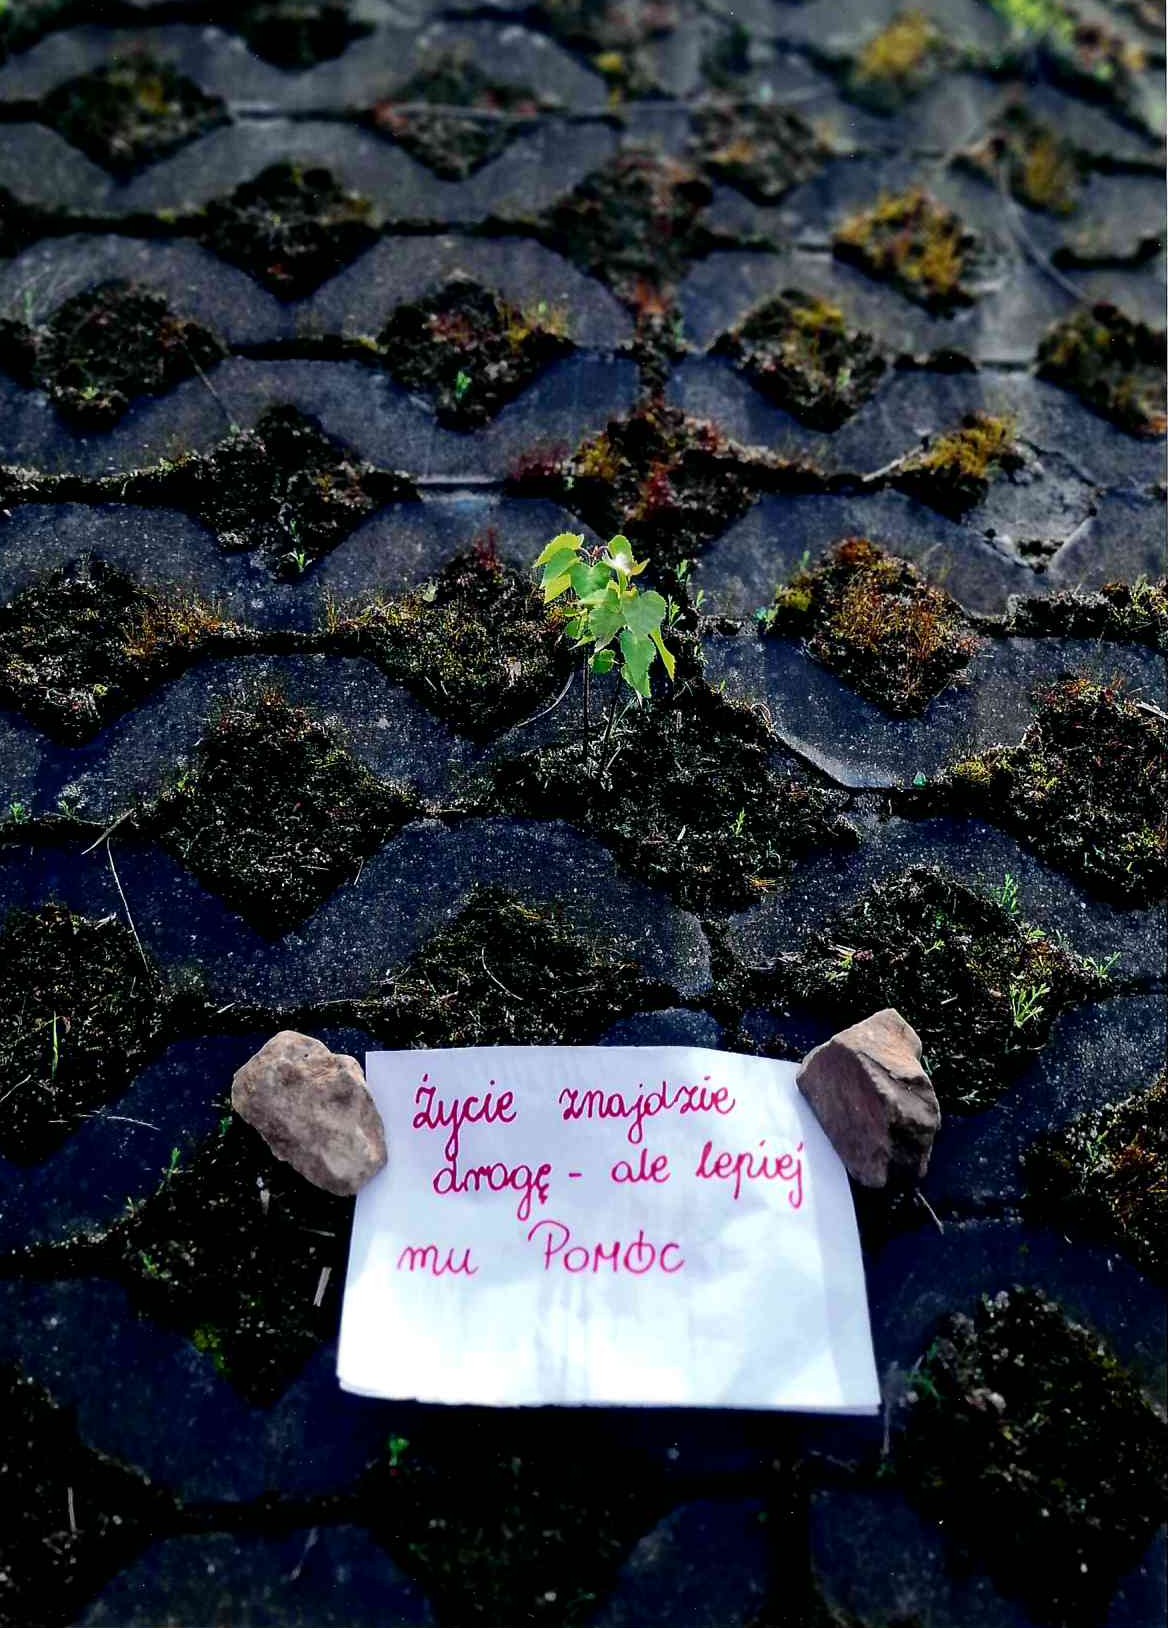 Życie znajdzie
drogę - ale lepiej
mu POMÓC